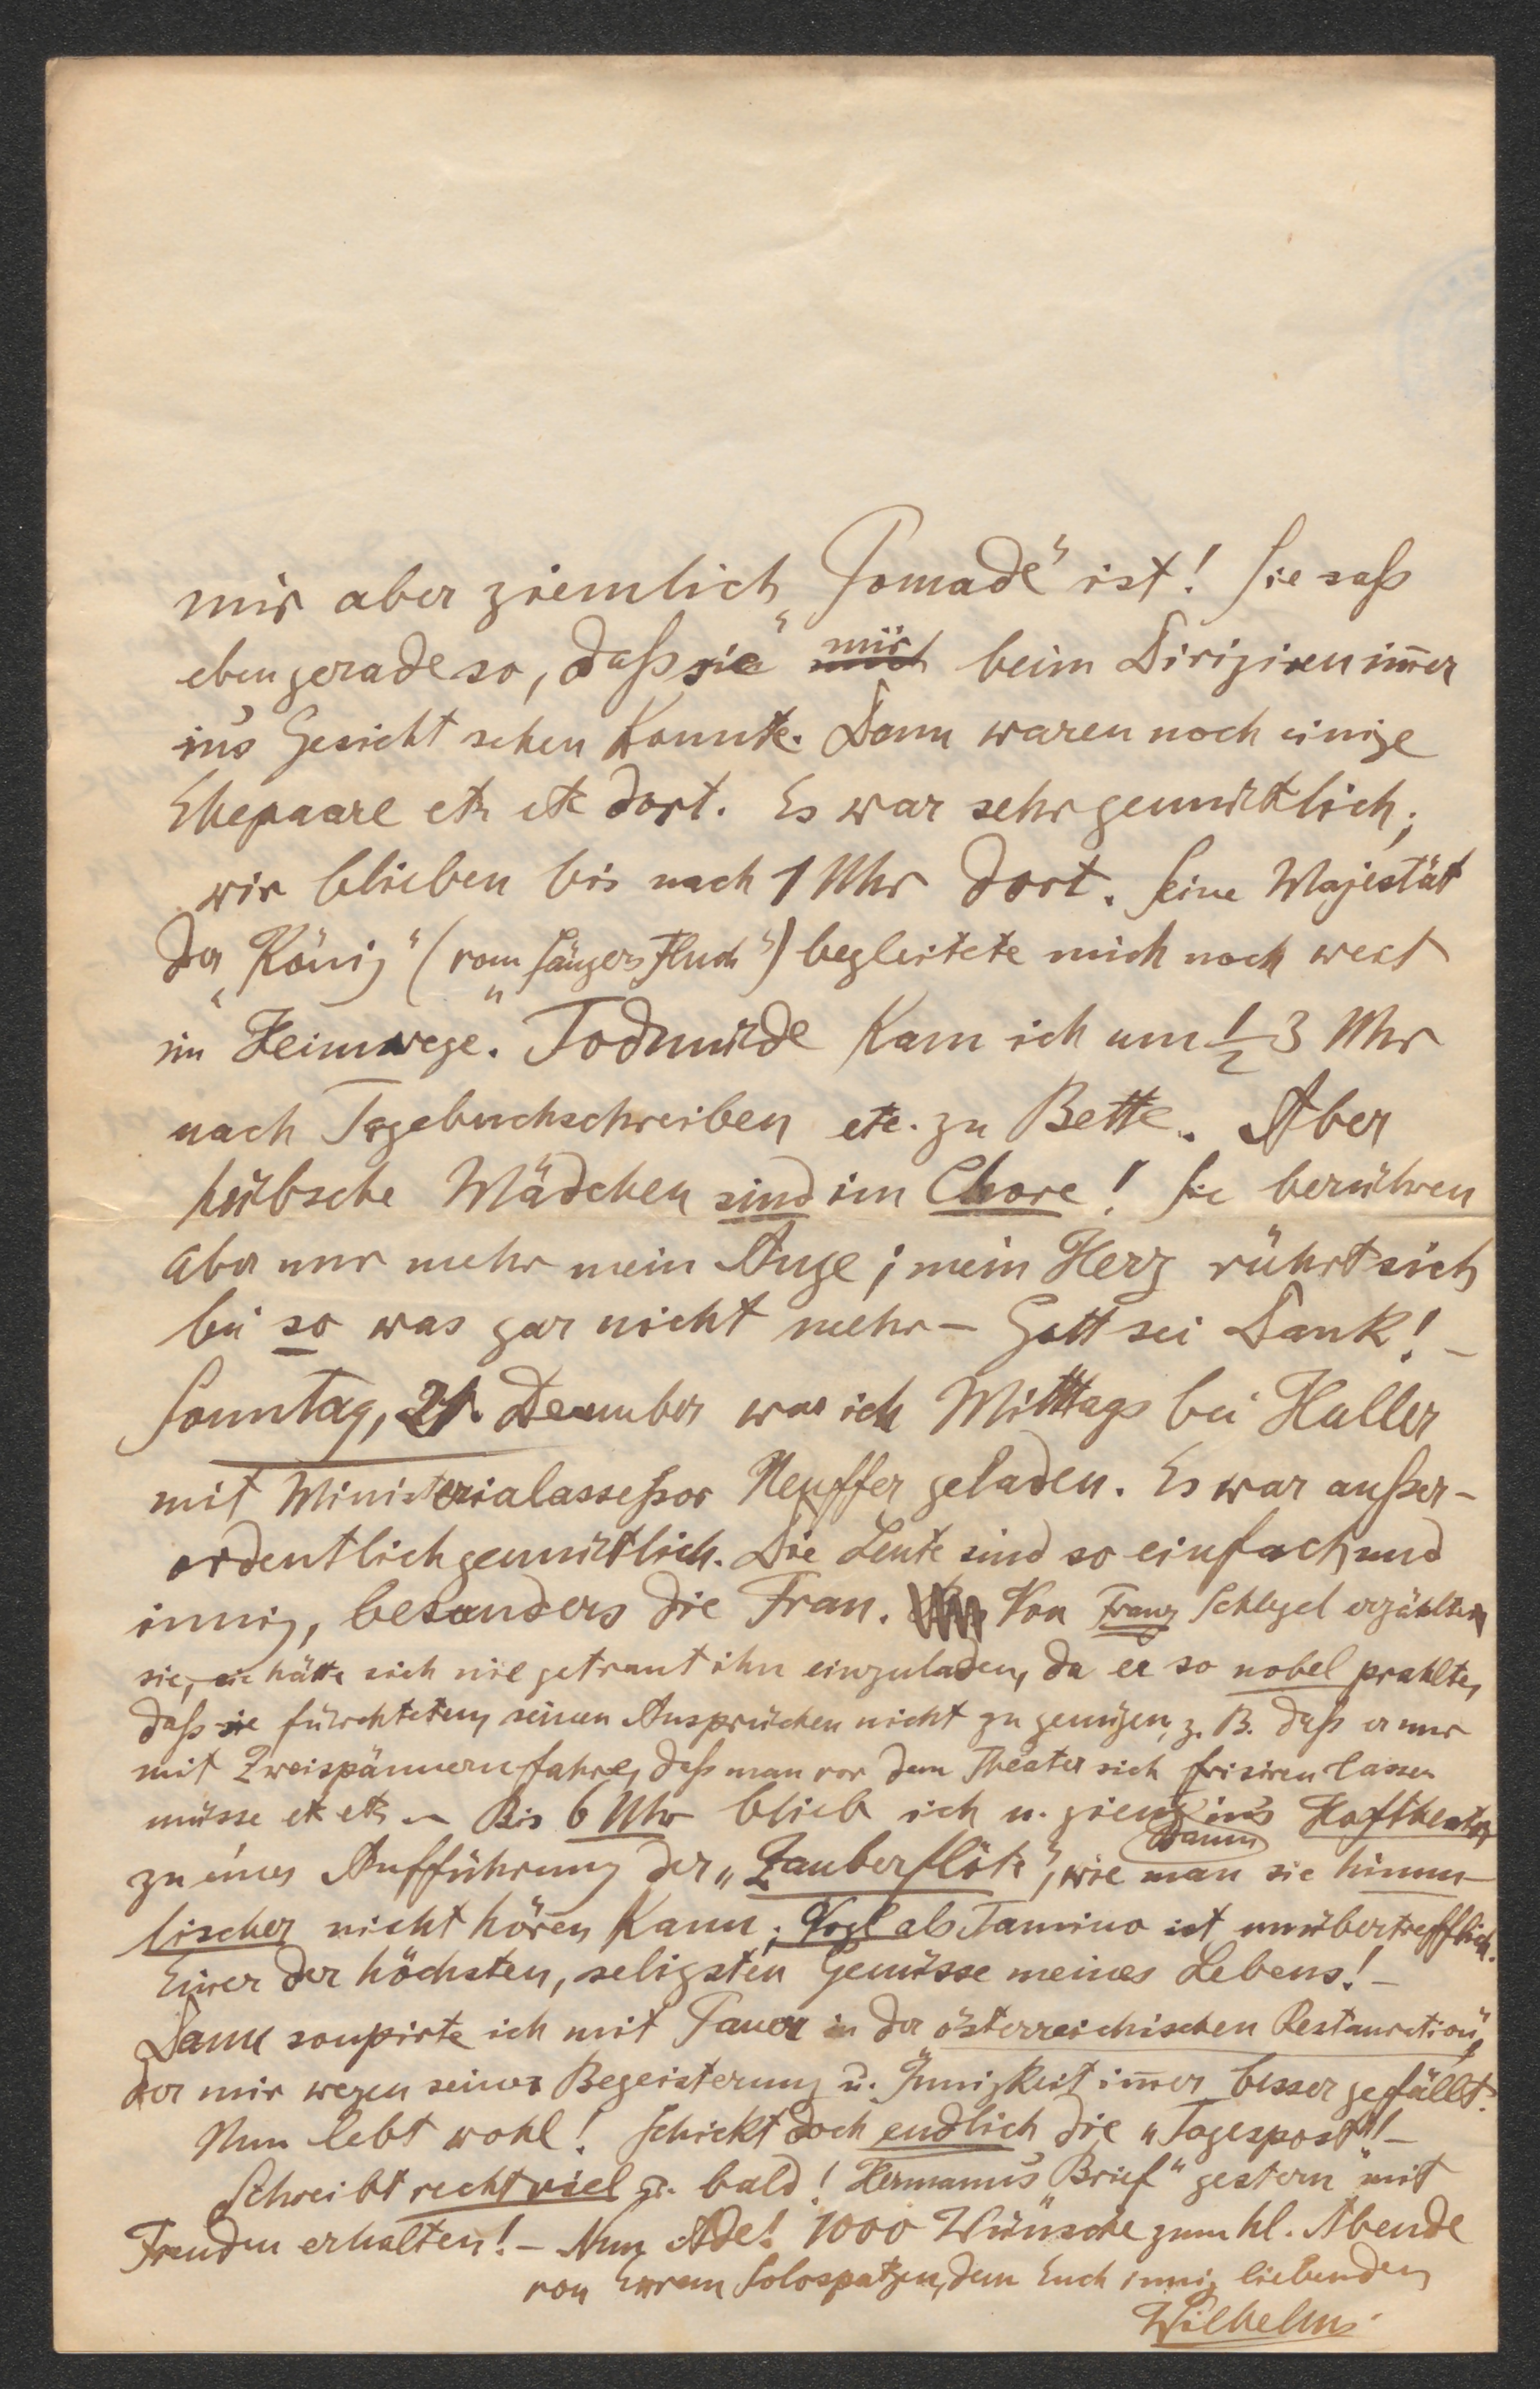 mir aber ziemlich „Pomade“ ist! Sie sass
eben gerade so, dass „sie“ mir beim Dirigiren im̅er
in's Gesicht sehen konnte. Dann waren noch einige
Ehepaare etc etc dort. Es war sehr gemütlich;
wir blieben bis nach 1 Uhr dort. Seine Majestät
der „König“ (vom „Sängers Fluch“) begleitete mich noch weit
im Heimwege. Todmüde kam ich um ½3 Uhr
nach Tagebuchschreiben etc. zu Bette. Aber
hübsche Mädchen sind im Chore! Sie berühren
aber nur mehr mein Auge; mein Herz rührt sich
bei so was gar nicht mehr – Gott sei Dank! –
Sonntag, 21. Dezember war ich Mittags bei Haller
mit Ministerialassessor Neuffer geladen. Es war ausser-
ordentlich gemütlich. Die Leute sind so einfach und
innig, besonders die Frau. Von Franz Schlegel erzählten
sie, sie hätten sich nie getraut ihn einzuladen, da er so nobel prahlte,
dass sie fürchteten, seinen Ansprüchen nicht zu genügen, z. B. dass er nur
mit Zweispännern fahre, dass man vor dem Theater sich frisiren lassen
müsse etc etc – Bis 6 Uhr blieb ich u. gieng dann in's Hoftheater
zu einer Aufführung der „Zauberflöte“, wie man sie himm-
lischer nicht hören kann; Vogl als Tamino ist unübertrefflich.
Einer der höchsten, seligsten Genüsse meines Lebens! –
Dann soupirte ich mit Pauer in der „österreichischen Restauration“,
der mir wegen seiner Begeisterung u. Innigkeit im̅er besser gefällt.
Nun lebt wohl! Schickt doch endlich die „Tagespost“! –
Schreibt recht viel u. bald! Hermann's Brief gestern mit
Freuden erhalten! – Nun Ade! 1000 Wünsche zum hl. Abende
von Eurem Solospatzen, dem Euch innig liebenden
Wilhelm.